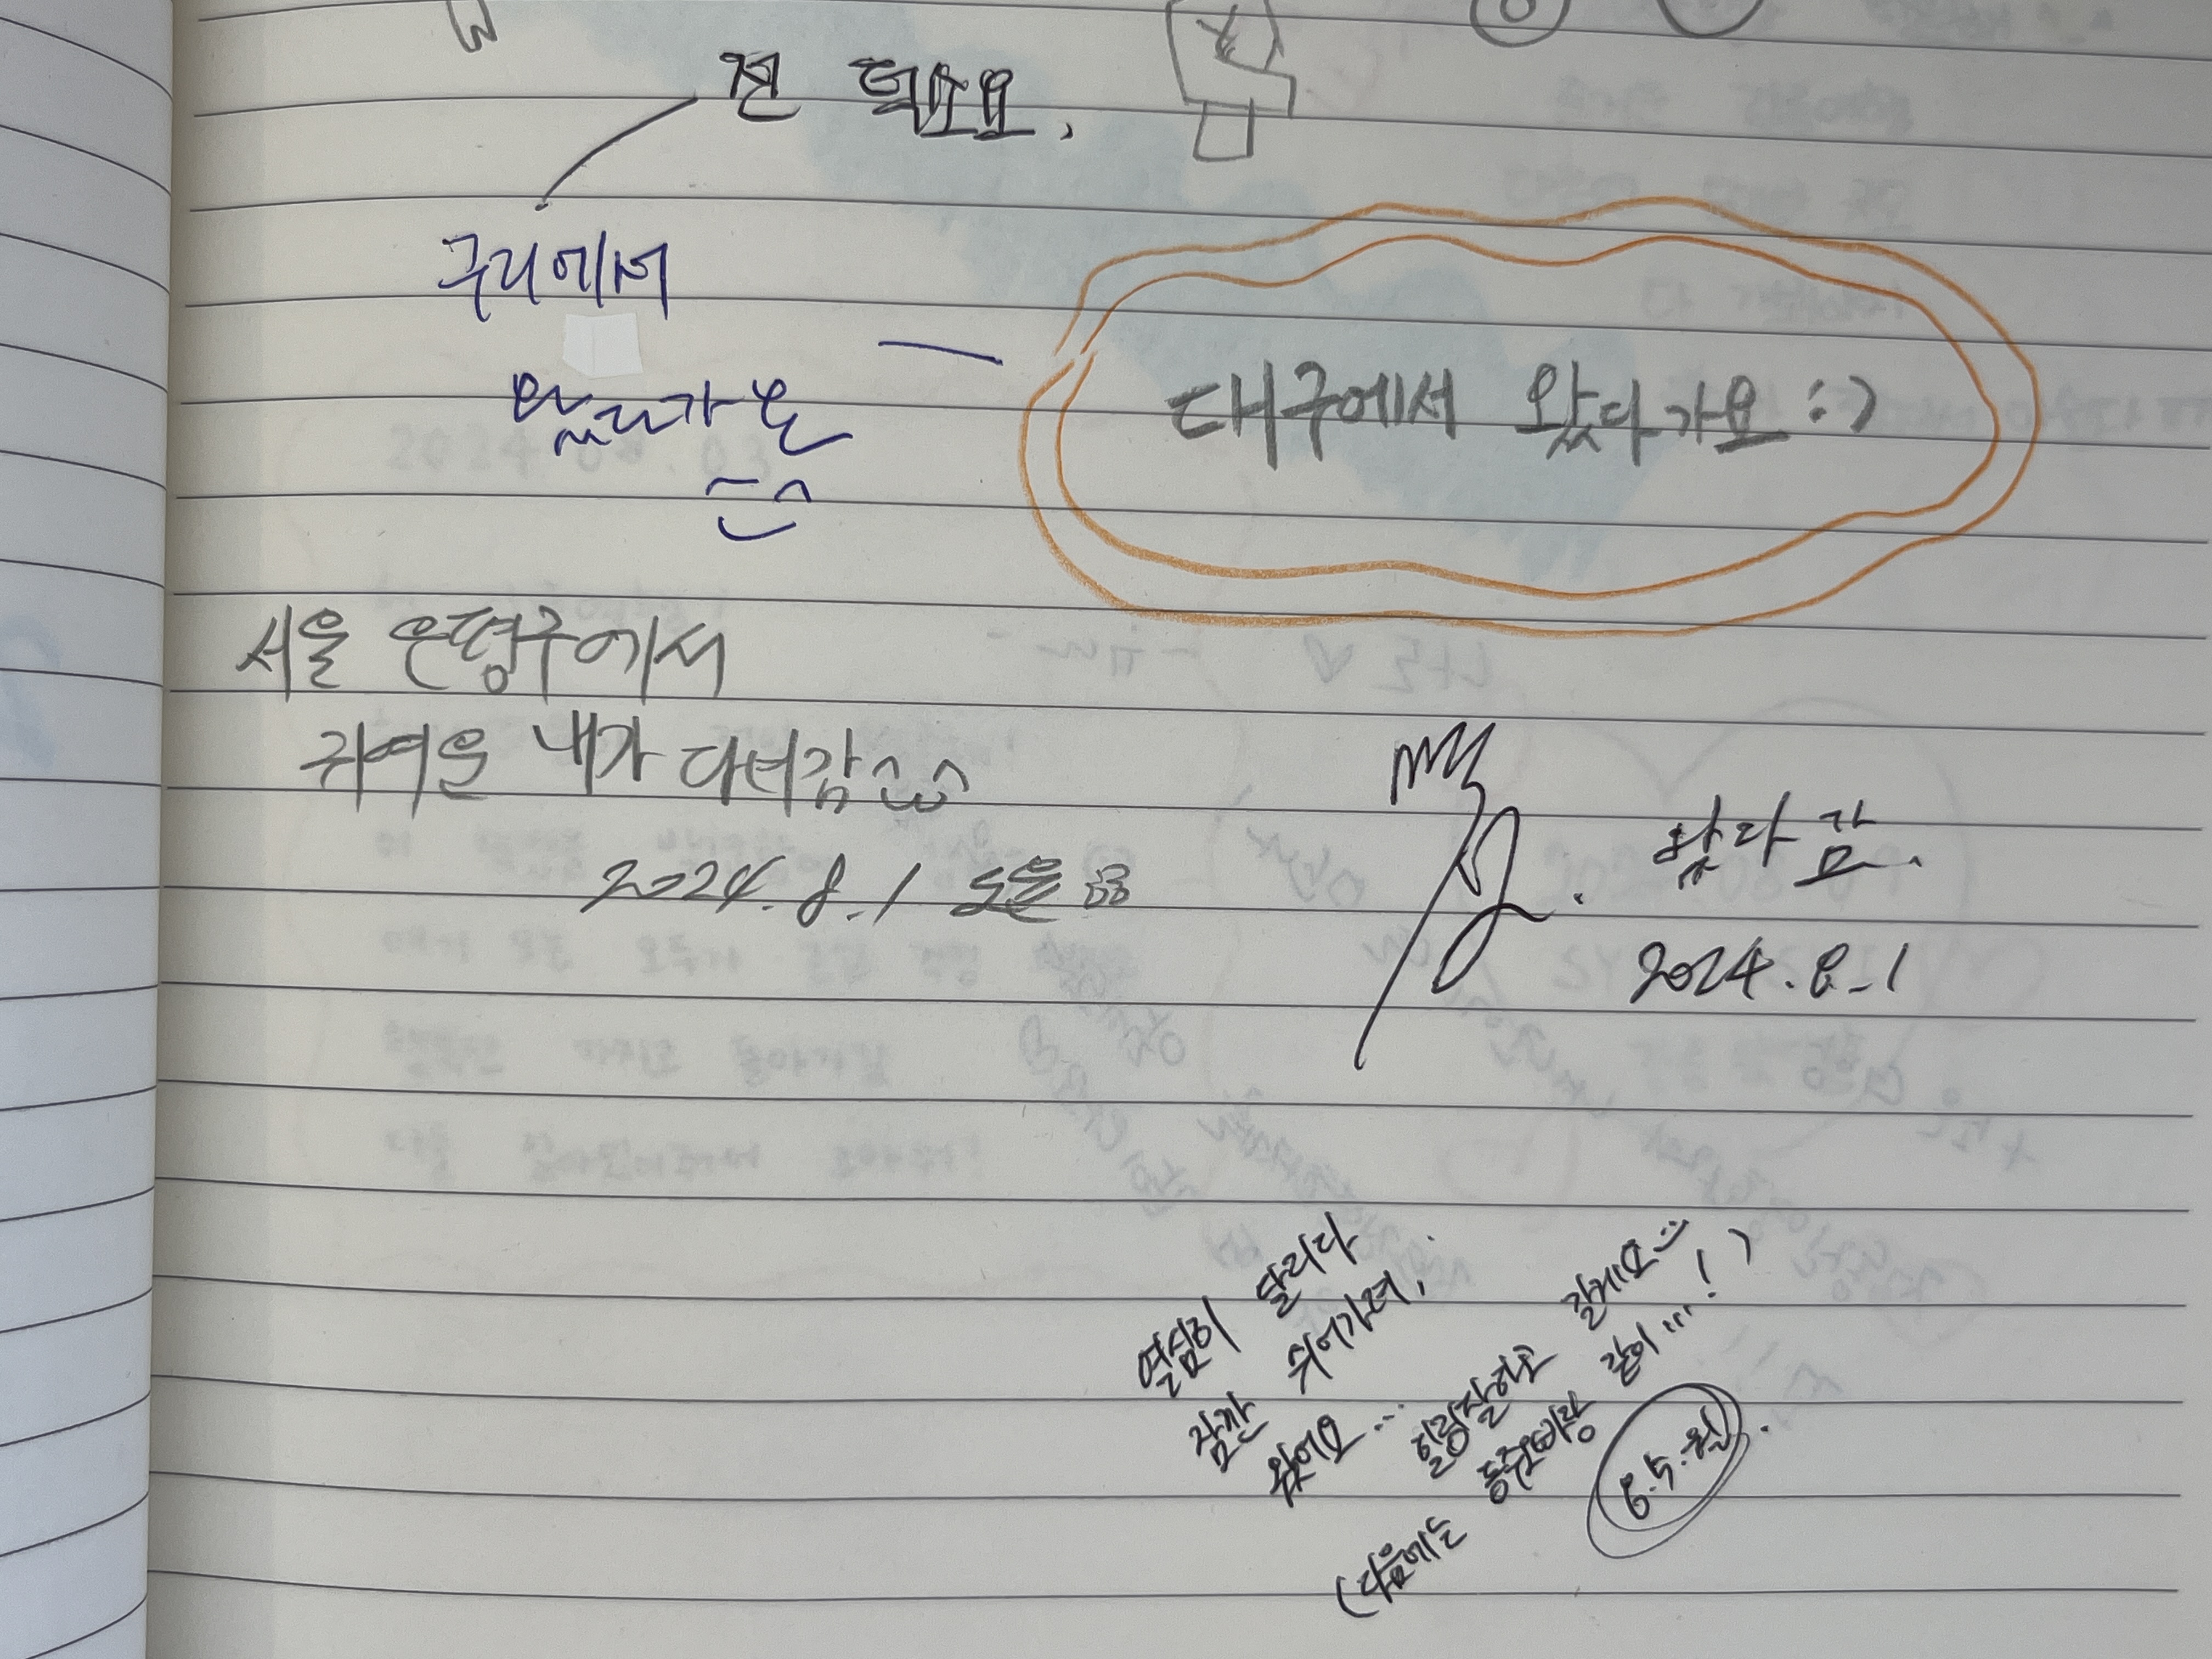 전 덕소요,
구리에서
왔다가요
대구에서 왔다가요 :)
서울 은평구에서
귀여운 내가 다녀감^^
2024. 8. 1
왔다 감.
2024. 8. 1
열심히 달리다
잠깐 쉬어가려,
왔어요...
힐링 잘하고 갈게요
(다음에는 동주비랑 같이...!)
8.5.월.